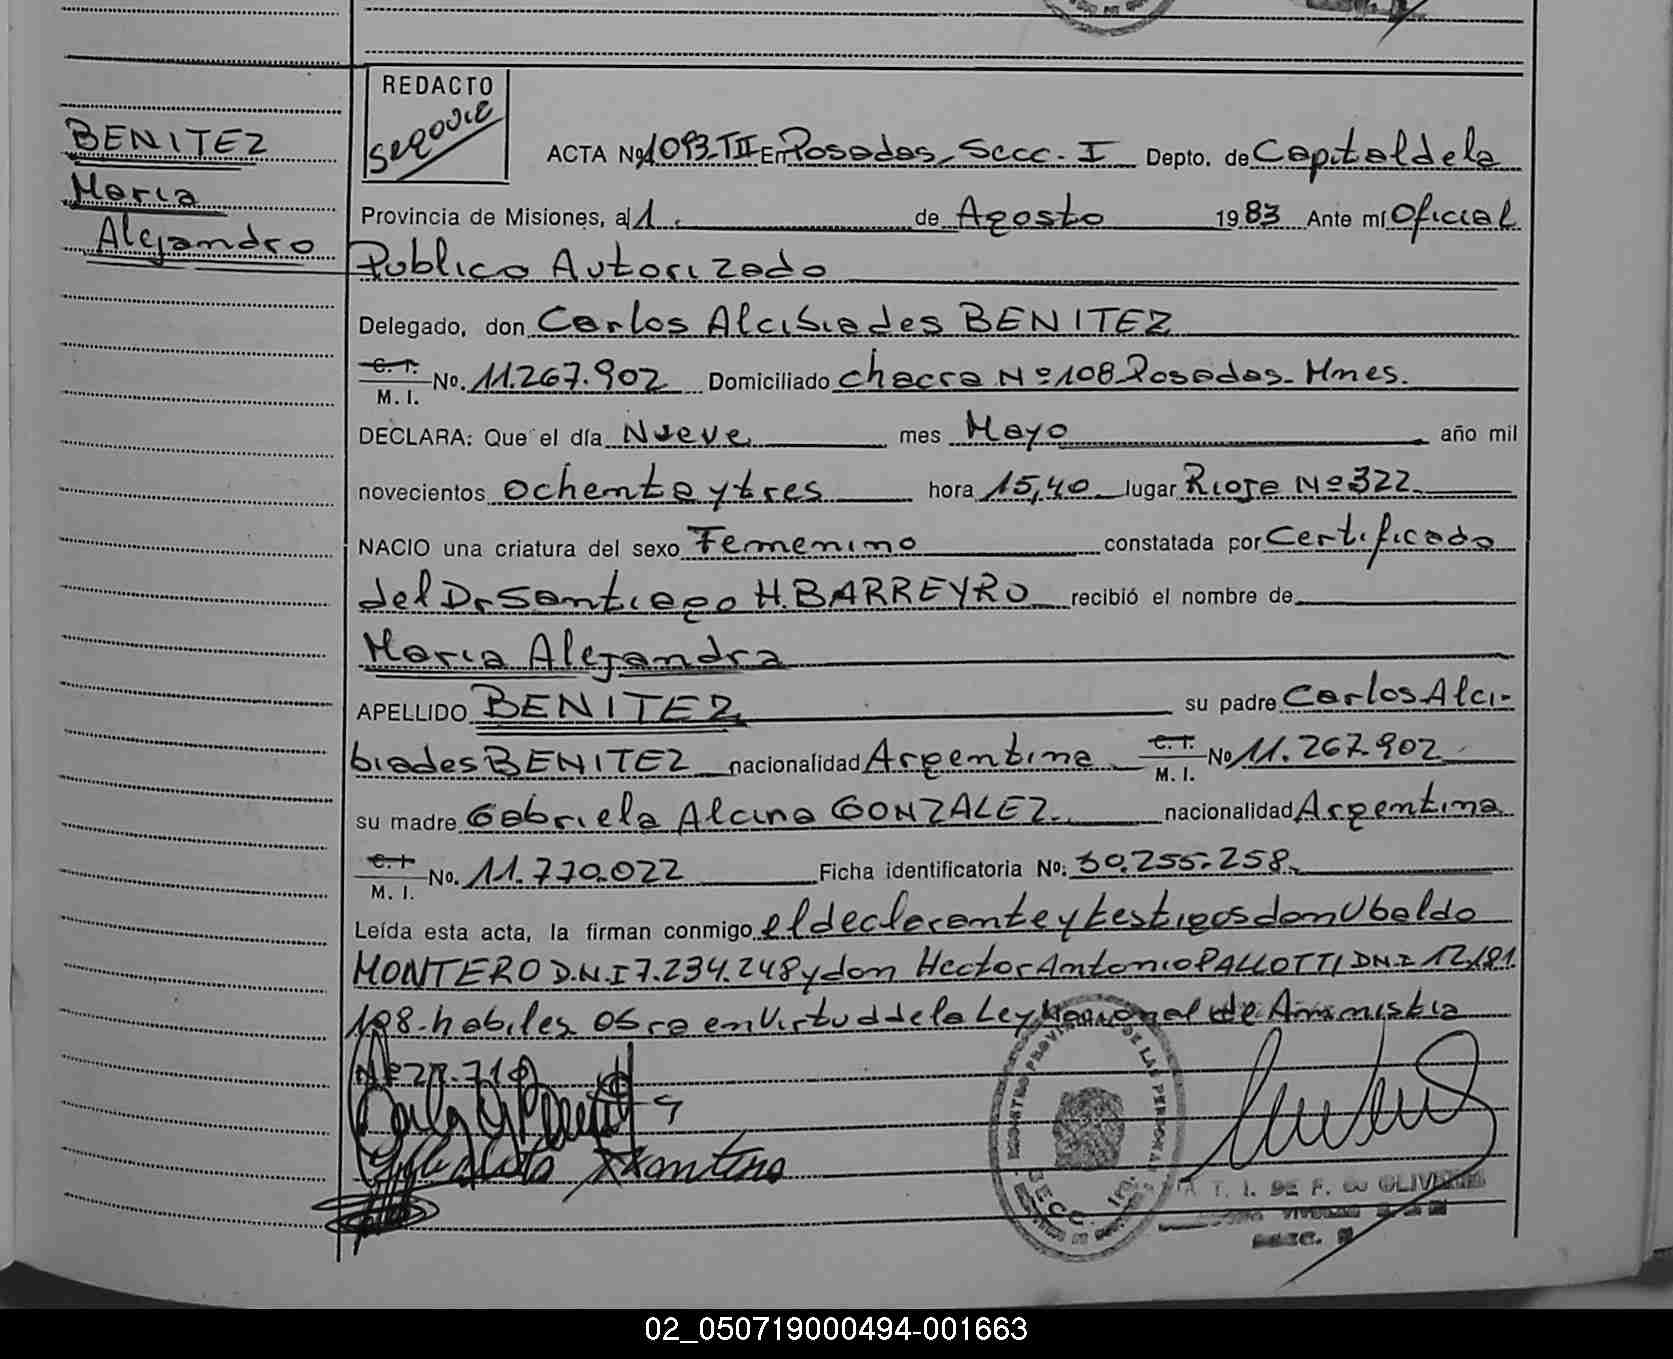 REDACTO
Segovie
BENITEZ
Maria
Alejandra
ACTA No. 1093-TII En Posadas, Secc. I Depto. de Capital de la
Provincia de Misiones, al 1. de Agosto 1983 Ante mí Oficial
Publico Autorizado
Delegado, don Carlos Alcibiades BENITEZ
C. I. M. I. No. 11.267.902 Domiciliado chacra Nº 108 Posadas - Mnes.
DECLARA: Que el día Nueve mes Mayo año mil
novecientos ochenta y tres hora 15,40 lugar Rioja Nº 322
NACIO una criatura del sexo Femenino constatada por Certificado
del Dr Santiago H. BARREYRO recibió el nombre de
Maria Alejandra
APELLIDO BENITEZ su padre Carlos Alci-
biades BENITEZ nacionalidad Argentina C. I. M. I. No 11.267.902
su madre Gabriela Alcina GONZALEZ nacionalidad Argentina
C. I. M. I. No. 11.770.022 Ficha identificatoria No: 30.255.258
Leída esta acta, la firman conmigo el declarante y testigos don Ubaldo
MONTERO D.N.I 7.234.248 y don Hector Antonio PALLOTTI DNI 12.181.
198 - habiles obra en Virtud de la Ley Nacional de Amnistia
DE LAS PERSONAS
SECC. 1ra.
T. I. DE F. DE OLIVEIRA
02_050719000494-001663